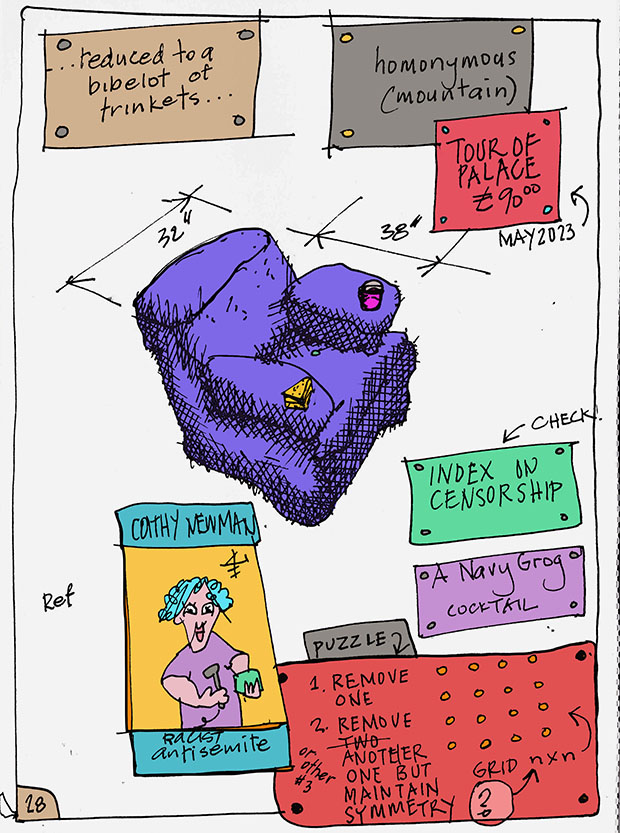 ...reduced to a
bibelot of
trinkets...
homonymous
(mountain)
TOUR OF
PALACE
£ 90.00
MAY 2023
32"
38"
CHECK!
INDEX ON
CENSORSHIP
A Navy Grog
COCKTAIL
CATHY NEWMAN
4
Ref
RACIST
antisemite
PUZZLE
1. REMOVE
ONE
2. REMOVE
TWO
ANOTHER
ONE BUT
MAINTAIN
SYMMETRY
or
other
#3
GRID n×n
?
28